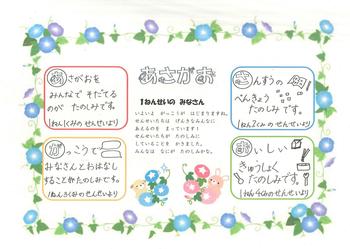 あさがお
1ねんせいの みなさん
いよいよ がっこうが はじまりますね。
せんせいたちは げんきなみんなに
あえるのを まっています！
せんせいたちが たのしみに
していることを かきました。
みんなは なにが たのしみかな。
あさがおを
みんなで そだてる
のが たのしみです。
1ねん1くみの せんせいより
さんすうの
べんきょう
たのしみです。
1ねん2くみの せんせいより
がっこうで
みなさんと おはなし
することが たのしみです。
1ねん3くみの せんせいより
おいしい
きゅうしょく
たのしみです。
1ねん4くみの せんせいより